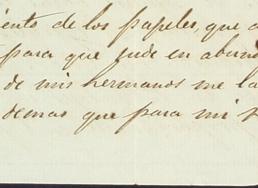 ento de los papeles, que
para que
de mis hermanos me la
demas que para mi